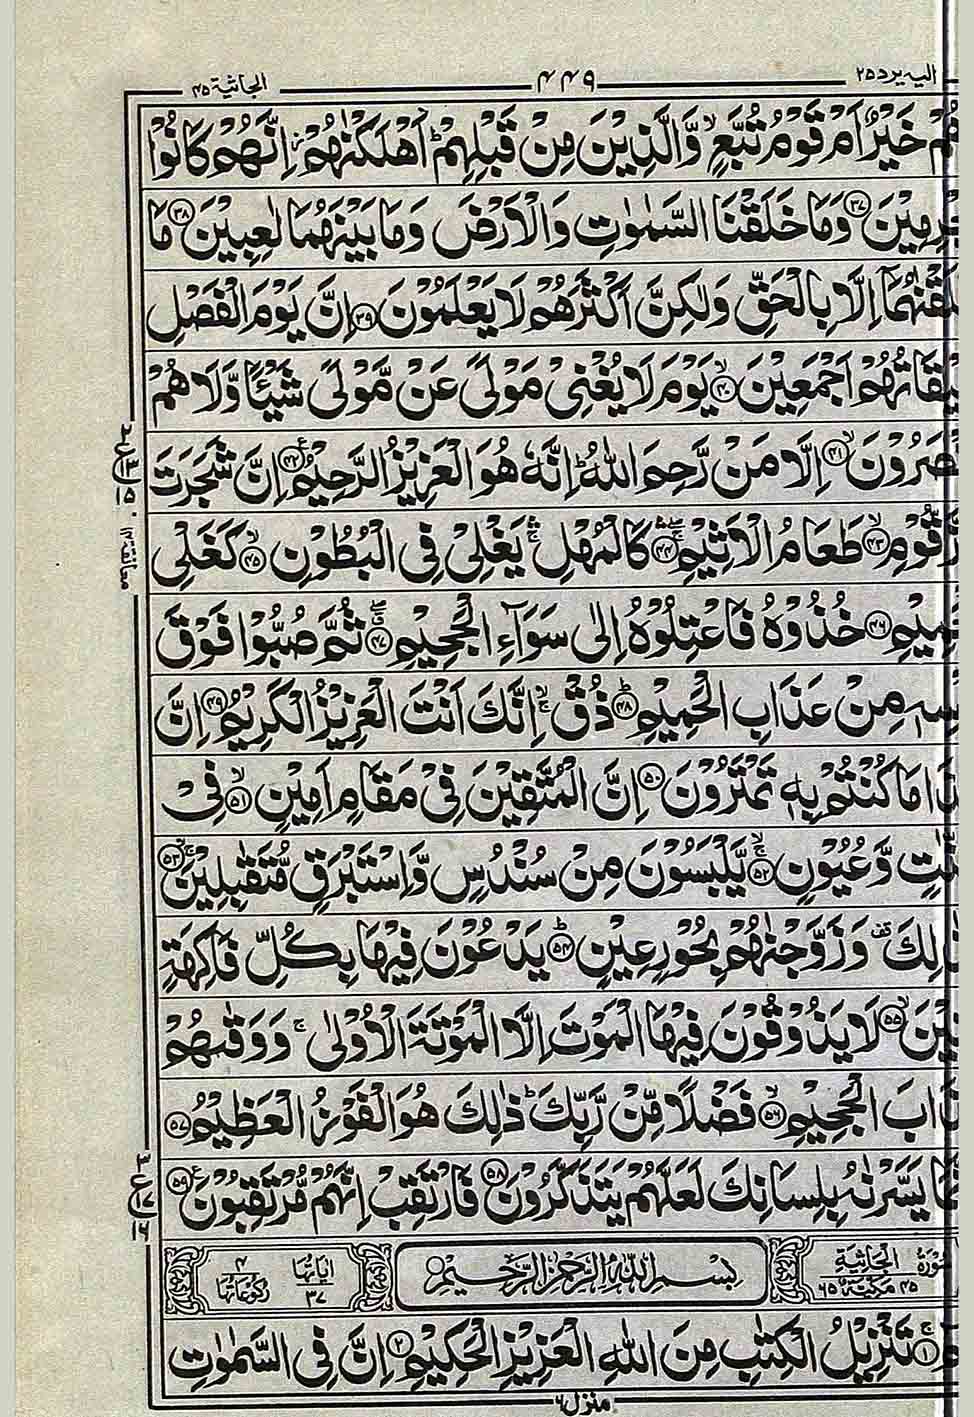 اليه يرد ٢٥
٤٤٩
الجاثية ٤٥
خَيْرٌ اَمْ قَوْمُ تُبَّعٍ ۙ وَّالَّذِيْنَ مِنْ قَبْلِهِمْ ؕ اَهْلَكْنٰهُمْ ؗ اِنَّهُمْ كَانُوْا
﴿٣٧﴾ وَمَا خَلَقْنَا السَّمٰوٰتِ وَالْاَرْضَ وَمَا بَيْنَهُمَا لٰعِبِيْنَ ﴿٣٨﴾ مَا
اِلَّا بِالْحَقِّ وَلٰكِنَّ اَكْثَرَهُمْ لَا يَعْلَمُوْنَ ﴿٣٩﴾ اِنَّ يَوْمَ الْفَصْلِ
اَجْمَعِيْنَ ۙ﴿٤٠﴾ يَوْمَ لَا يُغْنِيْ مَوْلًى عَنْ مَّوْلًى شَيْـًٔا وَّلَا هُمْ
﴿٤١﴾ۙ اِلَّا مَنْ رَّحِمَ اللّٰهُ ؕ اِنَّهٗ هُوَ الْعَزِيْزُ الرَّحِيْمُ ﴿٤٢﴾ اِنَّ شَجَرَتَ
﴿٤٣﴾ۙ طَعَامُ الْاَثِيْمِ ﴿٤٤﴾ كَالْمُهْلِ ۛۚ يَغْلِيْ فِي الْبُطُوْنِ ۙ﴿٤٥﴾ كَغَلْيِ
﴿٤٦﴾ خُذُوْهُ فَاعْتِلُوْهُ اِلٰى سَوَآءِ الْجَحِيْمِ ﴿٤٧﴾ ثُمَّ صُبُّوْا فَوْقَ
مِنْ عَذَابِ الْحَمِيْمِ ؕ﴿٤٨﴾ ذُقْ ۙۚ اِنَّكَ اَنْتَ الْعَزِيْزُ الْكَرِيْمُ ﴿٤٩﴾ اِنَّ
مَا كُنْتُمْ بِهٖ تَمْتَرُوْنَ ﴿٥٠﴾ اِنَّ الْمُتَّقِيْنَ فِيْ مَقَامٍ اَمِيْنٍ ۙ﴿٥١﴾ فِيْ
وَّعُيُوْنٍ ۙۚ﴿٥٢﴾ يَّلْبَسُوْنَ مِنْ سُنْدُسٍ وَّاِسْتَبْرَقٍ مُّتَقٰبِلِيْنَ ۙۚ﴿٥٣﴾
وَزَوَّجْنٰهُمْ بِحُوْرٍ عِيْنٍ ؕ﴿٥٤﴾ يَدْعُوْنَ فِيْهَا بِكُلِّ فَاكِهَةٍ
﴿٥٥﴾ۙ لَا يَذُوْقُوْنَ فِيْهَا الْمَوْتَ اِلَّا الْمَوْتَةَ الْاُوْلٰى ۚ وَوَقٰىهُمْ
الْجَحِيْمِ ۙ﴿٥٦﴾ فَضْلًا مِّنْ رَّبِّكَ ؕ ذٰلِكَ هُوَ الْفَوْزُ الْعَظِيْمُ ﴿٥٧﴾
يَسَّرْنٰهُ بِلِسَانِكَ لَعَلَّهُمْ يَتَذَكَّرُوْنَ ﴿٥٨﴾ فَارْتَقِبْ اِنَّهُمْ مُّرْتَقِبُوْنَ ﴿٥٩﴾
سُوْرَةُ الْجَاثِيَةِ ٤٥ مَكِّيَّةٌ ٦٥
بِسْمِ اللّٰهِ الرَّحْمٰنِ الرَّحِيْمِ
اٰيَاتُهَا ٣٧
٤ رُكُوْعَاتُهَا
﴿١﴾ۚ تَنْزِيْلُ الْكِتٰبِ مِنَ اللّٰهِ الْعَزِيْزِ الْحَكِيْمِ ﴿٢﴾ اِنَّ فِي السَّمٰوٰتِ
منزل ٦